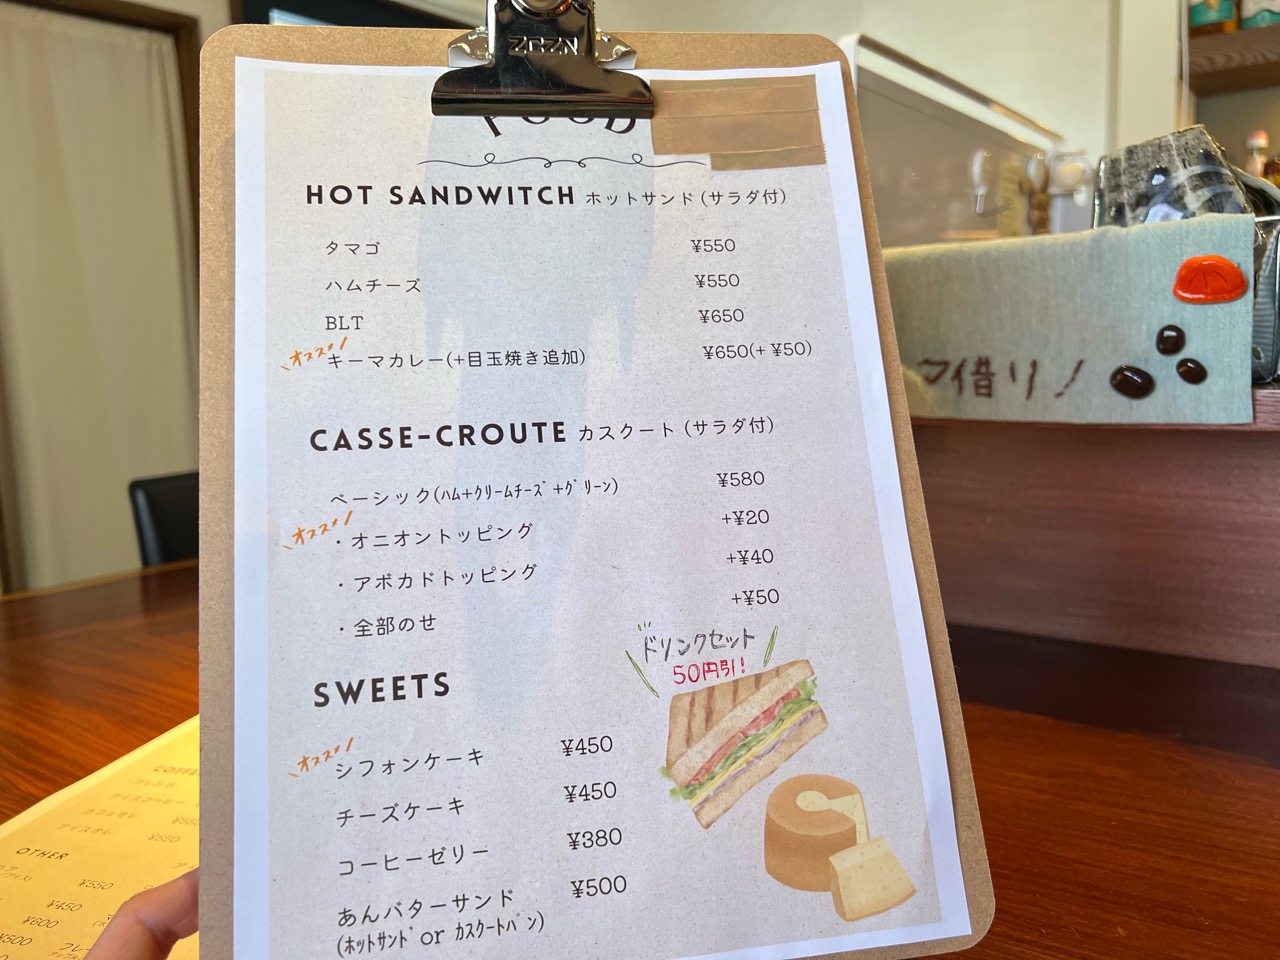 ZCZN
FOOD
HOT SANDWITCH ホットサンド (サラダ付)
タマゴ ¥550
ハムチーズ ¥550
BLT ¥650
オススメ!
キーマカレー(+目玉焼き追加) ¥650(+ ¥50)
CASSE-CROUTE カスクート (サラダ付)
ベーシック(ﾊﾑ+ｸﾘｰﾑﾁｰｽﾞ+ｸﾞﾘｰﾝ) ¥580
オススメ!
・オニオントッピング +¥20
・アボカドトッピング +¥40
・全部のせ +¥50
ドリンクセット
50円引!
SWEETS
オススメ!
シフォンケーキ ¥450
チーズケーキ ¥450
コーヒーゼリー ¥380
あんバターサンド ¥500
(ﾎｯﾄｻﾝﾄﾞ or ｶｽｸｰﾄﾊﾟﾝ)
マ借りノ
ブレンド
アイスコーヒー
カフェオレ
アイスオレ ¥550
OTHER
¥550
¥450
¥600
¥500